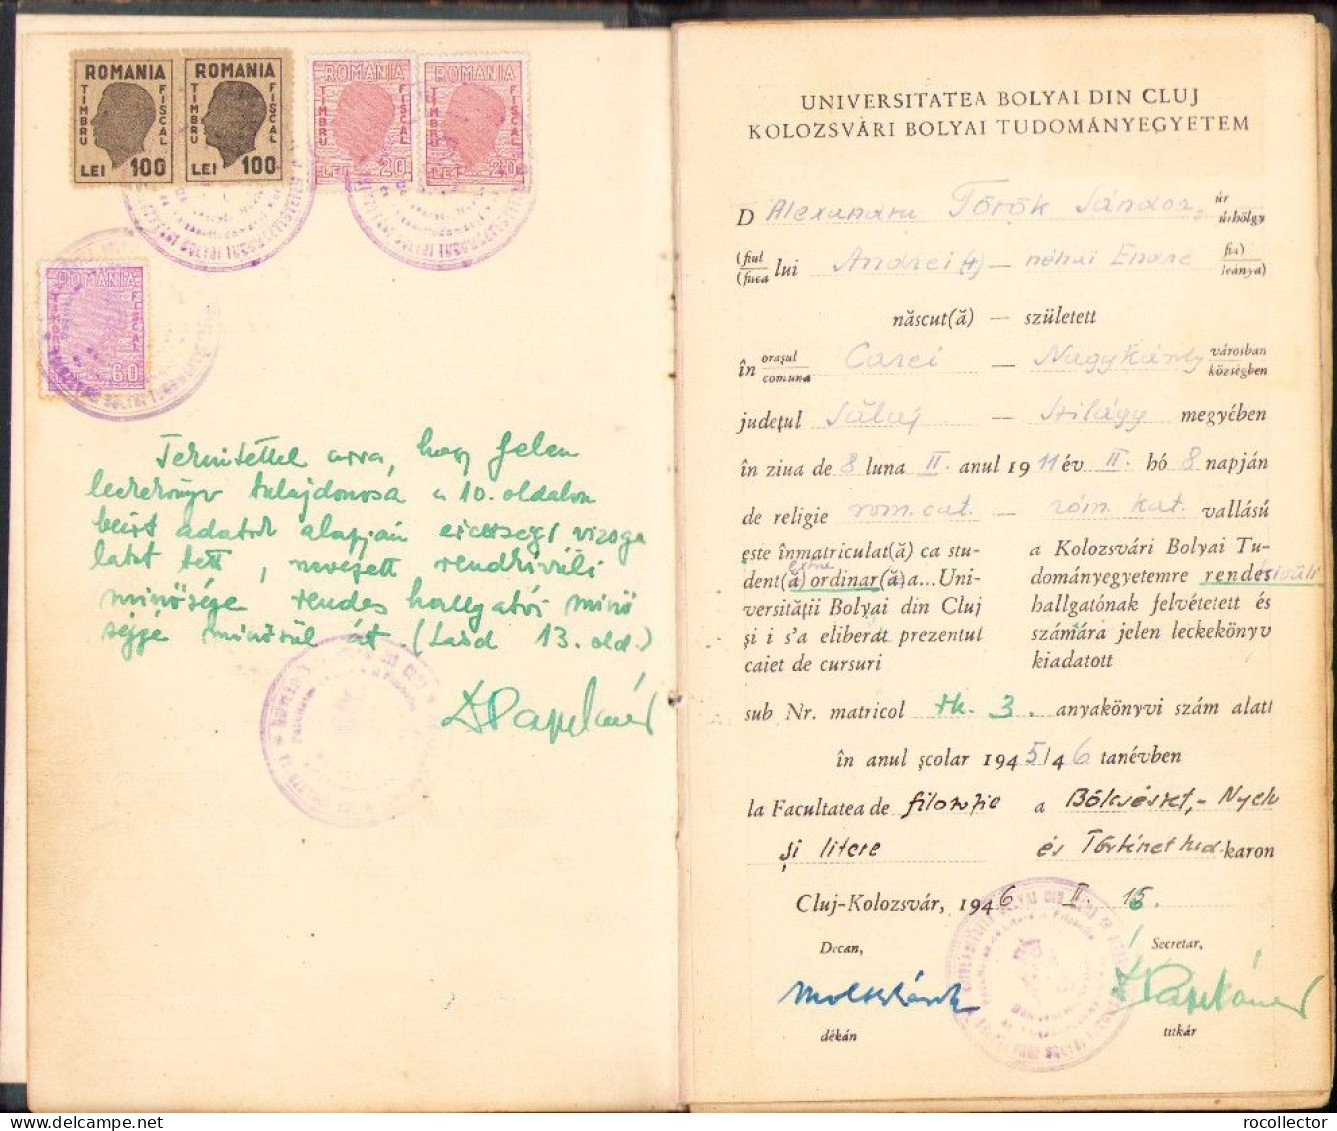 ROMANIA ROMANIA ROMANIA ROMANIA
TIMBRU FISCAL TIMBRU FISCAL TIMBRU FISCAL TIMBRU FISCAL
LEI 100 LEI 100 LEI 20 LEI 20
ROMANIA
TIMBRU FISCAL
LEI 60
Tekintettel arra, hogy jelen
leckekönyv tulajdonosa a 10. oldalon
beírt adatok alapján érettségi vizsga
latot tett, nevezett rendkívüli
minősége rendes hallgatói minő
séggé minősül át (Lásd 13. old.)
UNIVERSITATEA BOLYAI DIN CLUJ
KOLOZSVÁRI BOLYAI TUDOMÁNYEGYETEM
D Alexandru Török Sándor úr úrhölgy
(fiul (fiica lui Andrei (†) — néhai Endre fia) leánya)
născut(ă) — született
în orașul comuna Carei — Nagykároly városban községben
județul Sălaj — Szilágy megyében
în ziua de 8 luna II. anul 1911 év II. hó 8 napján
de religie rom. cat. — róm. kat. vallású
este înmatriculat(ă) ca stu-
dent(ă) extra ordinar(ă) a... Uni-
versității Bolyai din Cluj
și i s'a eliberat prezentul
caiet de cursuri
a Kolozsvári Bolyai Tu-
dományegyetemre rendeskivüli
hallgatónak felvétetett és
számára jelen leckekönyv
kiadatott
sub Nr. matricol rk. 3. anyakönyvi szám alatt
în anul școlar 1945/46 tanévben
la Facultatea de filozofie a Bölcsészet,- Nyelv
și litere és Történettud. karon
Cluj-Kolozsvár, 1946 II. 15.
Decan, Secretar,
dékán titkár
rocollector